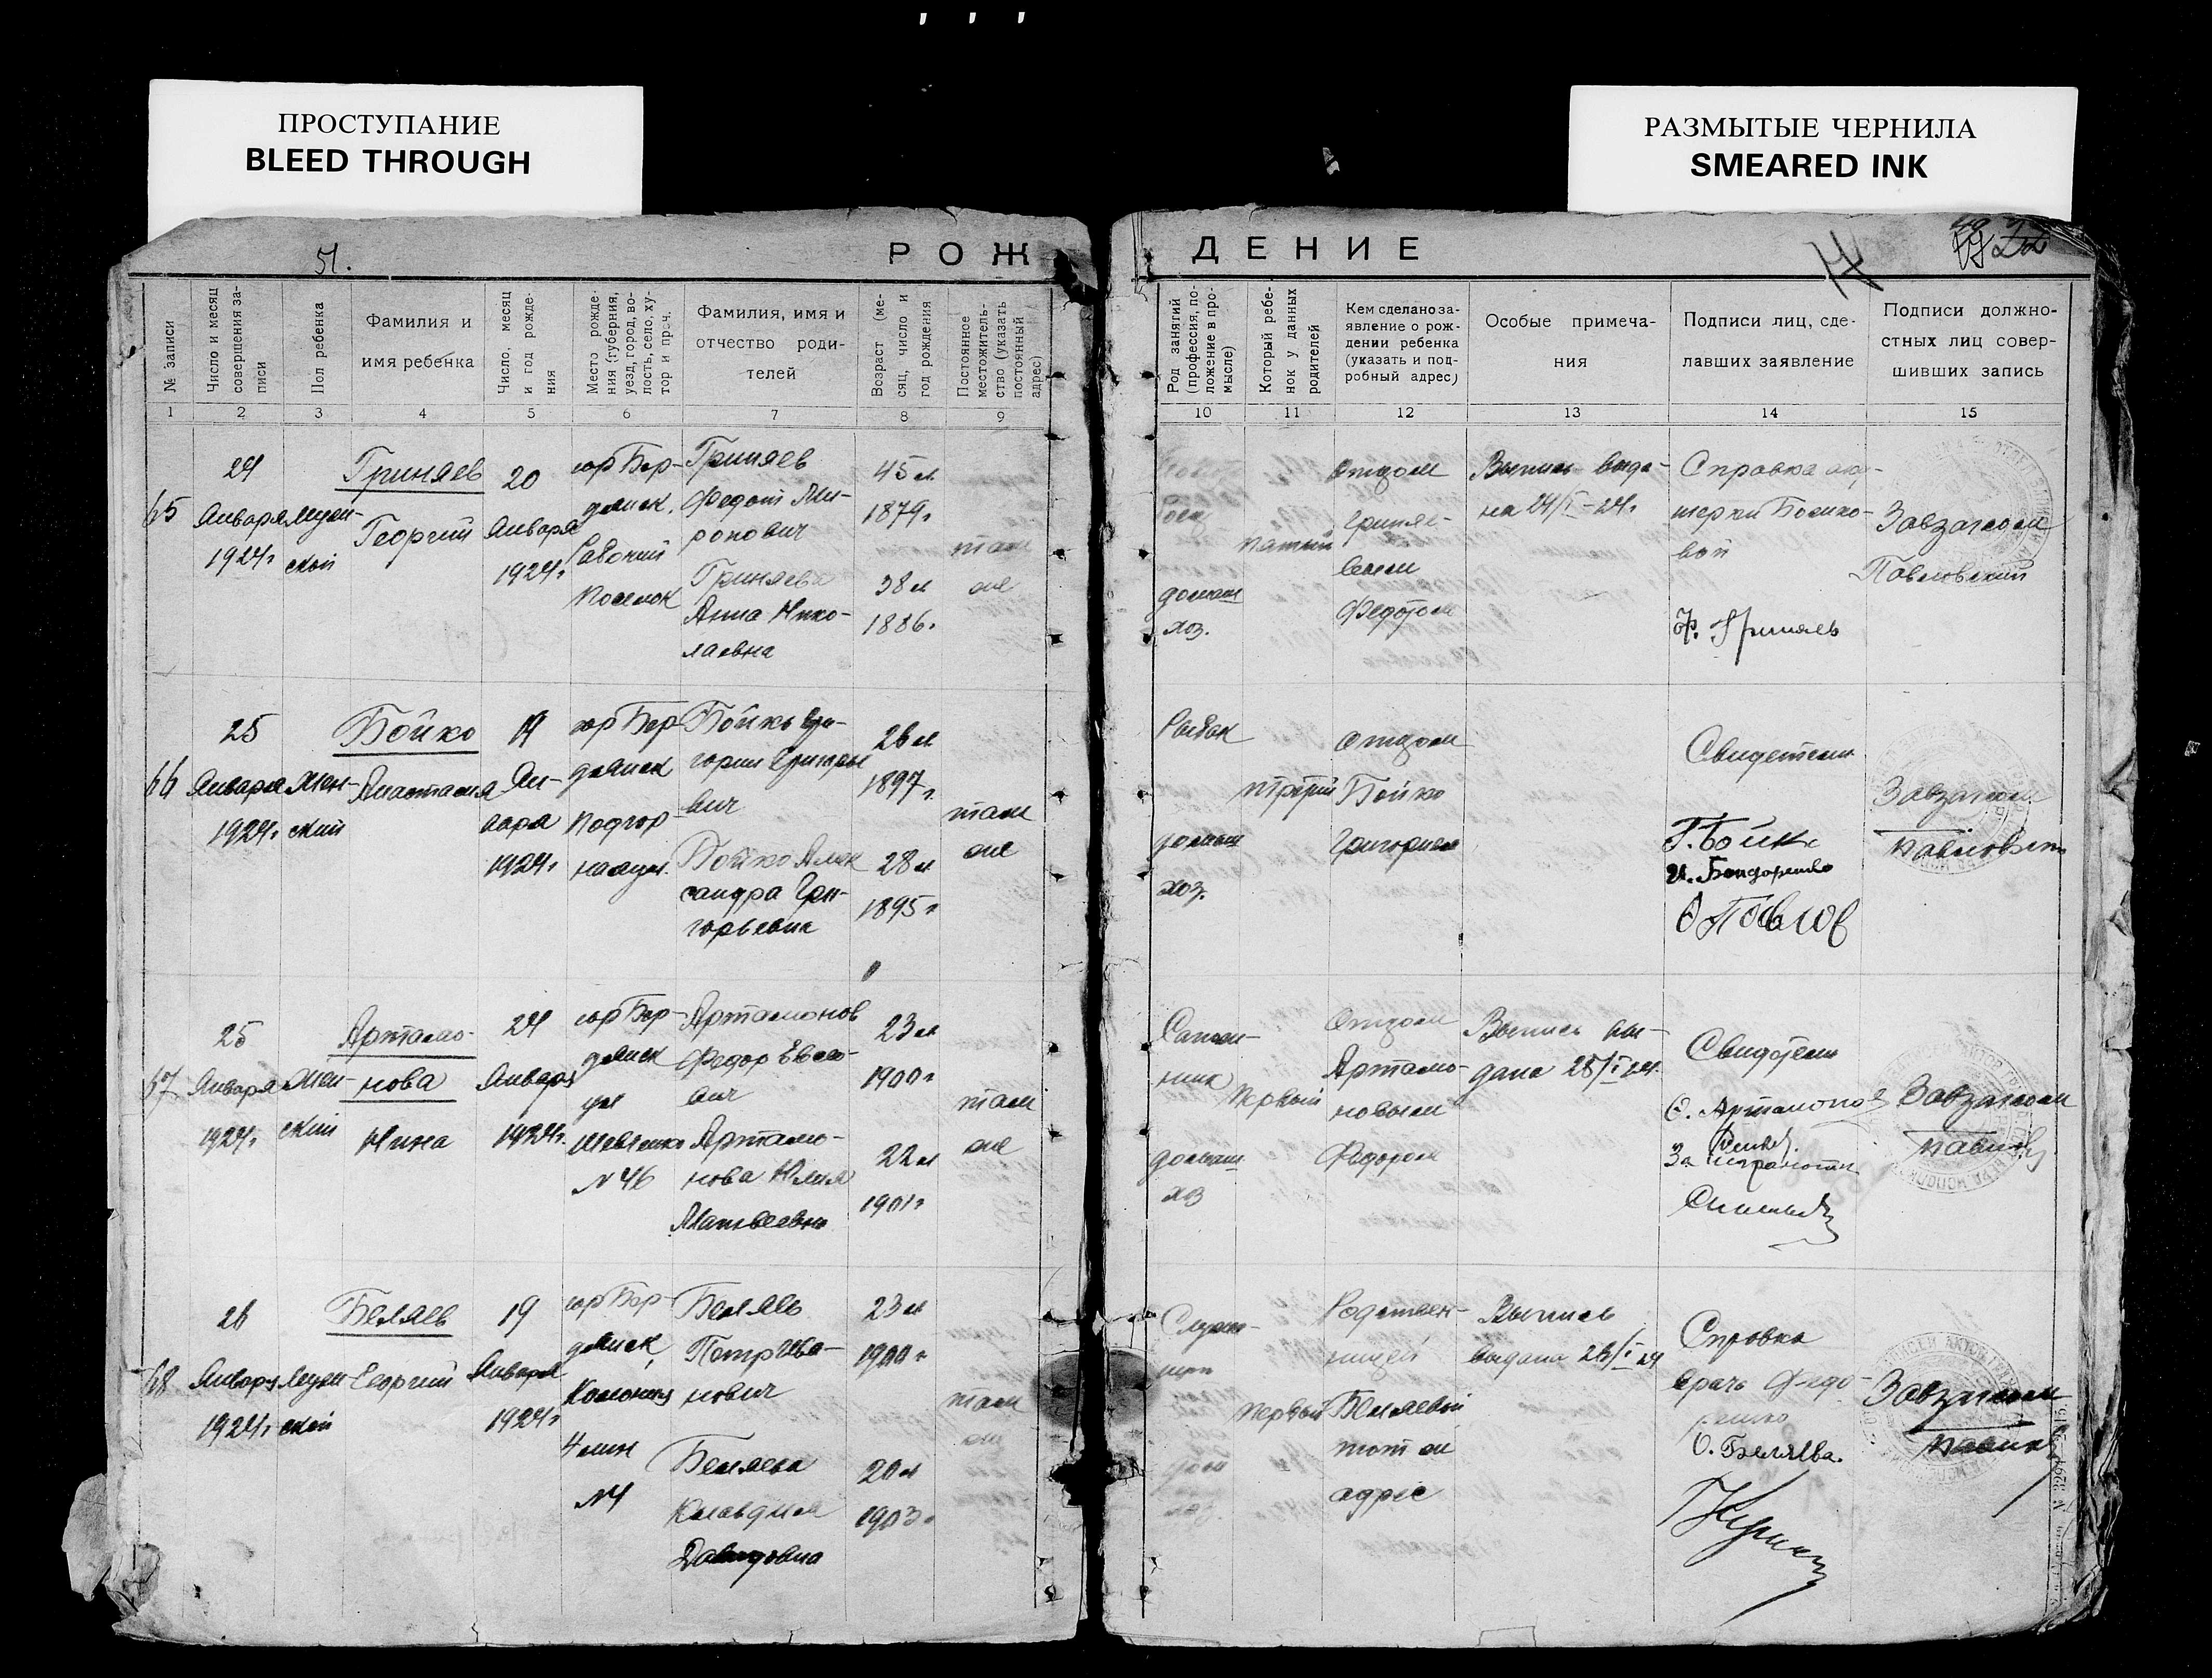 ПРОСТУПАНИЕ
BLEED THROUGH
РАЗМЫТЫЕ ЧЕРНИЛА
SMEARED INK
51.
РОЖДЕНИЕ
№ записи
Число и месяц совершения записи
Пол ребенка
Фамилия и
имя ребенка
Число, месяц и год рождения
Место рождения (губерния, уезд, город, волость, село, хутор и проч.
Фамилия, имя и
отчество роди-
телей
Возраст (месяц, число и год рождения
Постоянное местожительство (указать постоянный адрес)
Род занятий (профессия, положение в промысле)
Который ребенок у данных родителей
Кем сделано за-
явление о рож-
дении ребенка
(указать и под-
робный адрес)
Особые примеча-
ния
Подписи лиц, сде-
лавших заявление
Подписи должно-
стных лиц совер-
шивших запись
1 2 3 4 5 6 7 8 9 10 11 12 13 14 15
65
24
Января
1924г
мужской
Гриняев
Георгий
20
Января
1924г.
гор Бер-
дянск.
Рабочий
поселок
Гриняев
Федот Ми-
ронович
Гриняева
Анна Нико-
лаевна
45 л
1879г
38 л
1886г
там
же
домаш
хоз.
пятый
Отцом
Гриняе-
вым
Федотом
Выпись выда-
на 24/I-24г
Справка аку-
шерки
Завзагсом
Павловский
Ф. Гриняев
66
25
Января
1924г.
Жен-
ский
Бойко
Анастасия
19
Ян-
варя
1924г
гор Бер
дянск
Подгор-
ная ул.
Бойко Гри-
горий Григорье
вич
Бойко Алек
сандра Гри-
горьевна
26 л
1897г.
28 л
1895г
там
же
Рыбак
домаш
хоз.
третий
Отцом
Бойко
Григорием
Свидетели
Г. Бойко
И. Бондаренко
Завзагсом
67
25
Января
1924г.
Жен-
ский
Артамо-
нова
Нина
24
Января
1924г.
гор Бер-
дянск
ул
Шевченко
№ 46
Артамонов
Федор
Артамо-
нова Юлия
Матвеевна
23 л
1900г
22 л
1901г
там
же
Сапож-
ник
домаш
хоз
первый
Отцом
Артамо-
новым
Федором
Выпись вы-
дана 25/I 24.
Свидетели
Завзагсом
68
26
Января
1924г.
мужской
Беляев
Георгий
19
Января
1924г
гор Бер-
дянск,
Колония
4 лин
№ 4
Беляев
Петр Ива-
нович
Беляева
Клавдия
Давидовна
23 л
1900г
20 л
1903г
там
же
первый
Родствен-
ницей
Беляевой
тот же
адрес
Выпись
выдана 26/I 24
Справка
врача
О. Беляева.
Завзагсом